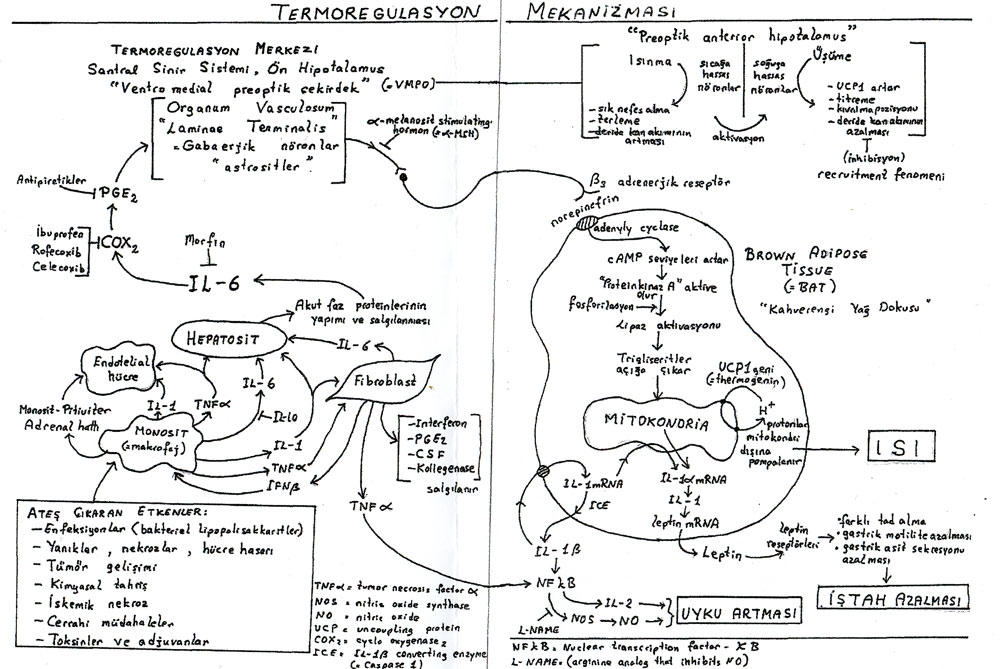 TERMOREGULASYON MEKANİZMASI
TERMOREGULASYON MERKEZİ
Santral Sinir Sistemi, Ön Hipotalamus
"Ventro medial preoptik çekirdek" (=VMPO)
Organum Vasculosum
"Laminae Terminalis"
= Gabaerjik nöronlar
"astrositler"
α-melanosit stimulating
hormon (=α-MSH)
Antipiretikler
PGE2
İbuprofen
Rofecoxib
Celecoxib
COX2
Morfin
IL-6
Akut faz proteinlerinin
yapımı ve salgılanması
HEPATOSİT
IL-6
Endotelial
hücre
Fibroblast
IL-6
IL-1
TNFα
IL-10
Monosit-Pitiüiter
Adrenal hattı
MONOSİT
(=makrofaj)
IL-1
TNFα
IFNβ
-İnterferon
-PGE2
-CSF
-Kollegenase
salgılanır
TNFα
ATEŞ ÇIKARAN ETKENLER:
- Enfeksiyonlar (bakteriel lipopolisakkaritler)
- Yanıklar, nekrozlar, hücre hasarı
- Tümör gelişimi
- Kimyasal tahriş
- İskemik nekroz
- Cerrahi müdahaleler
- Toksinler ve adjuvanlar
TNFα = tumor necrosis factor α
NOS = nitric oxide synthase
NO = nitric oxide
UCP = uncoupling protein
COX2 = cyclo oxygenase2
ICE = IL-1β converting enzyme
(= Caspase 1)
"Preoptik anterior hipotalamus"
Isınma
sıcağa
hassas
nöronlar
soğuğa
hassas
nöronlar
Üşüme
- sık nefes alma
- terleme
- deride kan akımının
artması
aktivasyon
- UCP1 artar
- titreme
- kıvrılma pozisyonu
- deride kan akımının
azalması
(inhibisyon)
recruitment fenomeni
β3 adrenerjik reseptör
norepinefrin
adenyly cyclase
cAMP seviyeleri artar
"Proteinkinaz A" aktive
olur
fosforilasyon
Lipaz aktivasyonu
Trigliseritler
açığa çıkar
BROWN ADİPOSE
TISSUE
(=BAT)
"Kahverengi Yağ Dokusu"
UCP1 geni
(=thermogenin)
H+
protonlar
mitokondri
dışına
pompalanır
MİTOKONDRİA
ISI
IL-1 mRNA
ICE
IL-1α mRNA
IL-1
leptin mRNA
Leptin
leptin
reseptörleri
• farklı tad alma
• gastrik motilite azalması
• gastrik asit sekresyonu
azalması
İŞTAH AZALMASI
IL-1β
NFkB
IL-2
NOS
NO
L-NAME
UYKU ARTMASI
NFkB = Nuclear transcription factor - KB
L-NAME = (arginine analog that inhibits NO)